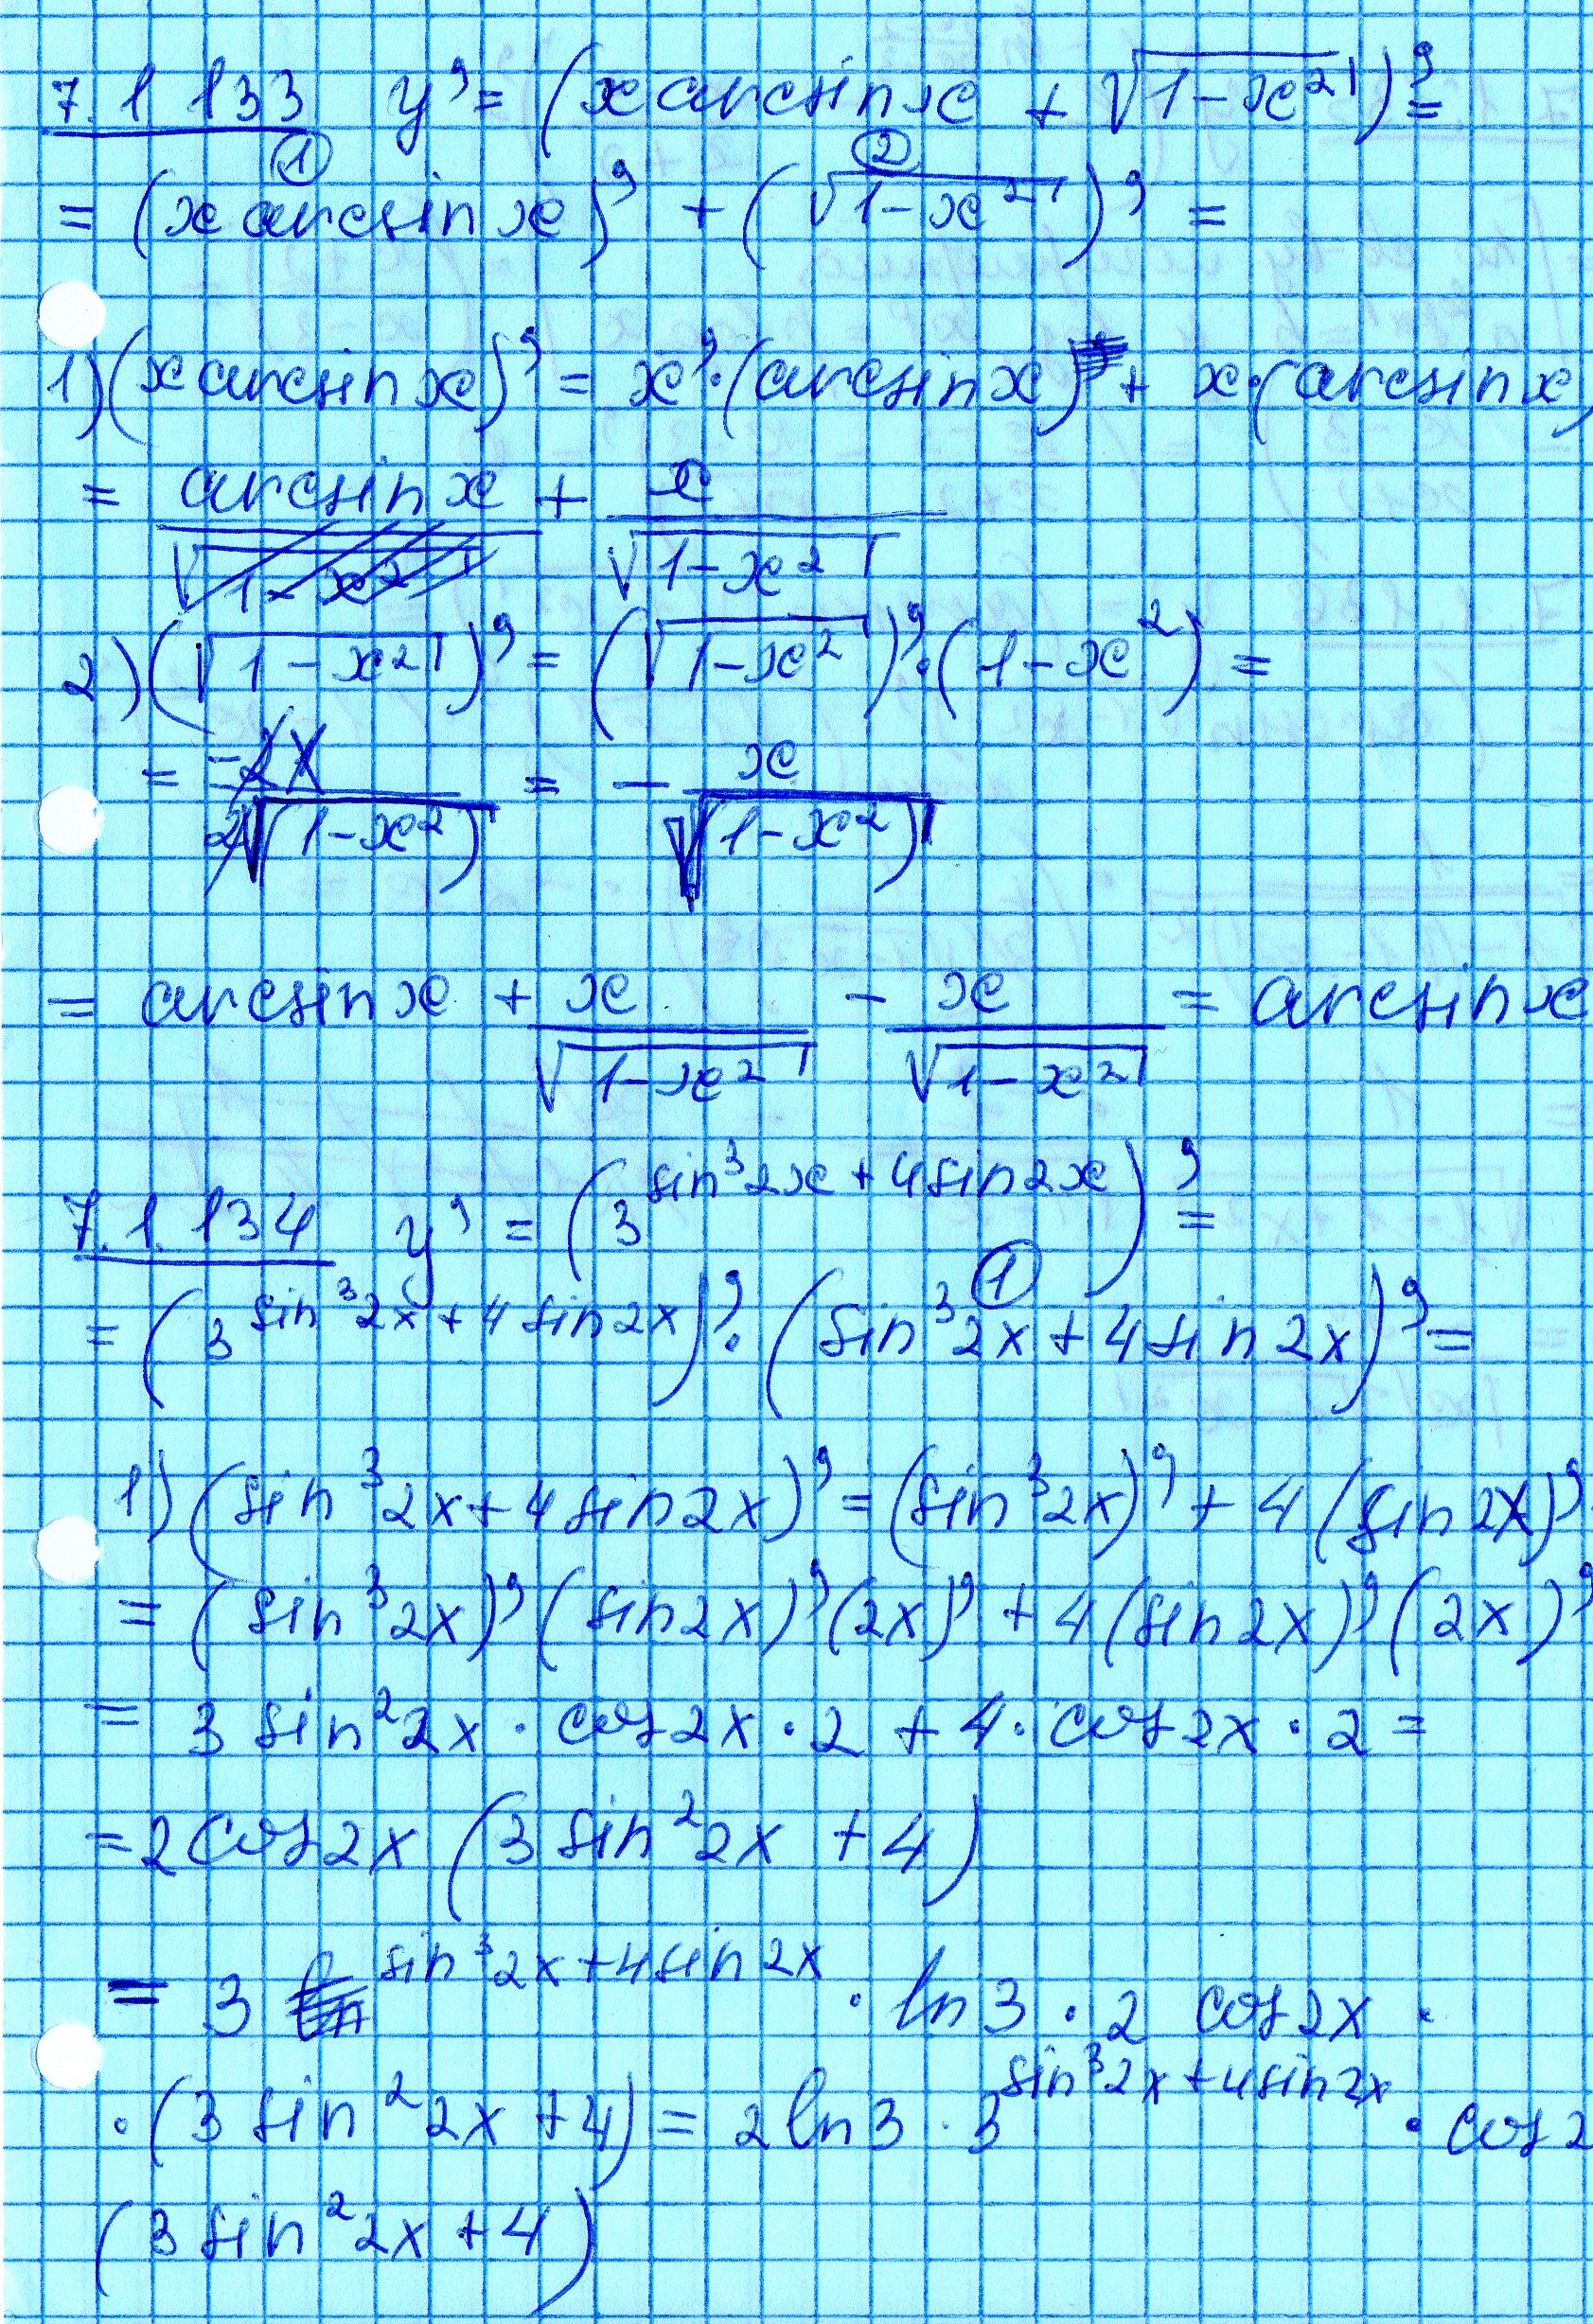 7.1.133 y' = (x arcsin x + √(1-x²))' =
① ②
= (x arcsin x)' + (√(1-x²))' =
1) (x arcsin x)' = x'·(arcsin x) + x·(arcsin x)
= arcsin x + x/√(1-x²)
2) (√(1-x²))' = (√(1-x²))'·(1-x²) =
= -2x/(2√(1-x²)) = - x/√(1-x²)
= arcsin x + x/√(1-x²) - x/√(1-x²) = arcsin x
7.1.134 y' = (3^(sin³2x+4sin2x))' =
①
= (3^(sin³2x+4sin2x))'·(sin³2x+4sin2x)' =
1) (sin³2x+4sin2x)' = (sin³2x)' + 4(sin2x)'
= (sin³2x)'(sin2x)'(2x)' + 4(sin2x)'(2x)'
= 3sin²2x·cos2x·2 + 4·cos2x·2 =
= 2cos2x(3sin²2x+4)
= 3^(sin³2x+4sin2x)·ln3·2cos2x·
·(3sin²2x+4) = 2ln3·3^(sin³2x+4sin2x)·cos2
(3sin²2x+4)